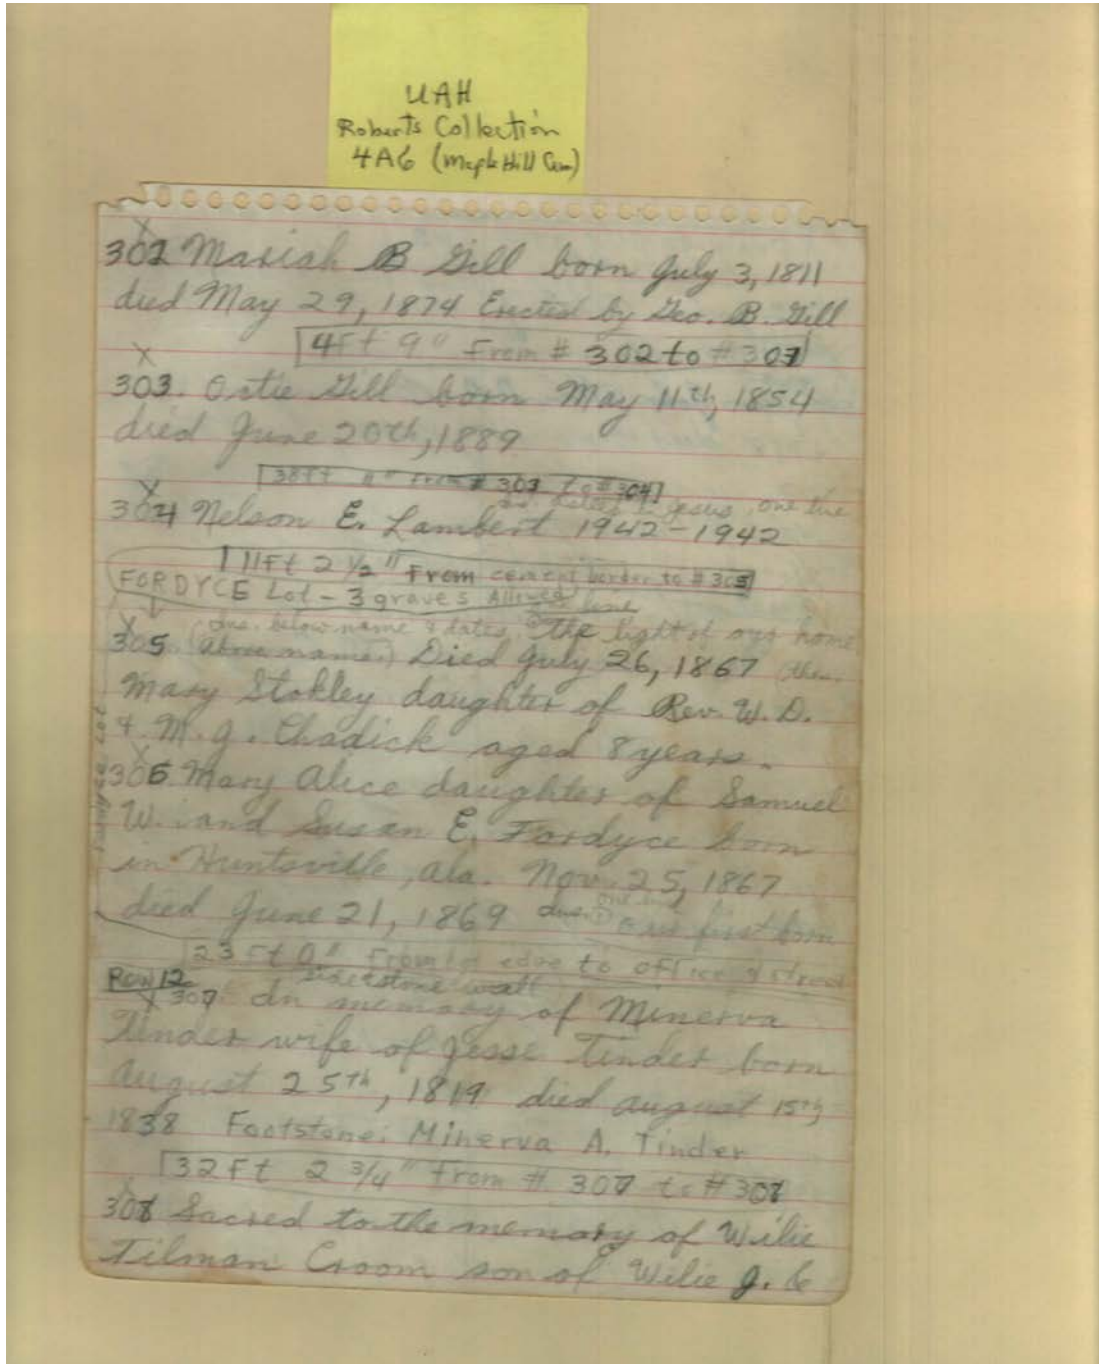 UAH
Roberts Collection
4A6 (Maple Hill Cem)
302 Mariah B Gill born July 3, 1811
died May 29, 1874 Erected by Geo. B. Gill
4Ft 9" From # 302 to # 303
303. Ortie Gill born May 11th, 1854
died June 20th, 1889
38ft " From # 303 to # 304
Jesus, one line
304 Nelson E. Lambert 1942-1942
11Ft 2 1/2" From cement border to # 305
FORDYCE Lot - 3 graves Allowed
line
ins. below name & dates, The light of our home
305. (Above name) Died July 26, 1867 (then
Mary Stokley daughter of Rev. W. D.
& M. J. Chadick aged 8 years.
306. Mary Alice daughter of Samuel
W. and Susan E. Fordyce born
in Huntsville, Ala. Nov. 25, 1867
one line
died June 21, 1869 ins. Our first born
23 Ft 0" From lot edge to office &
Row 12 wall
307. In memory of Minerva
Tinder wife of Jesse Tinder born
August 25th, 1819 died August 15th,
1838 Footstone: Minerva A. Tinder
32Ft 2 3/4" From # 307 to # 308
308 Sacred to the memory of Wilie
Tilman Croom son of Wilie J. &